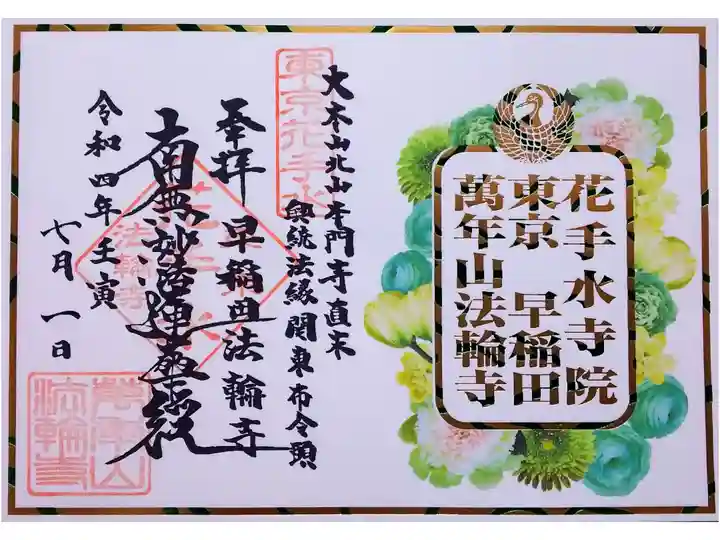 花手水寺院
東京 早稲田
萬年山法輪寺
大本山北山本門寺直末
興統法縁関東布令頭
東京花手水
奉拝 早稲田法輪寺
南無妙法蓮華経
法輪寺
令和四年壬寅
七月一日